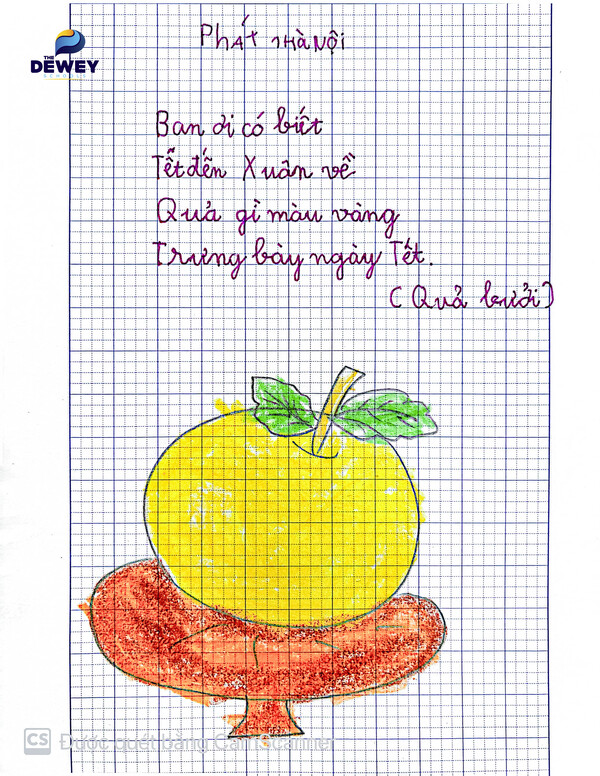 THE
DEWEY
SCHOOLS
Phát 1Hà Nội
Ban ơi có biết
Tết đến Xuân về
Quả gì màu vàng
Trưng bày ngày Tết.
(Quả bưởi)
CS Được quét bằng CamScanner